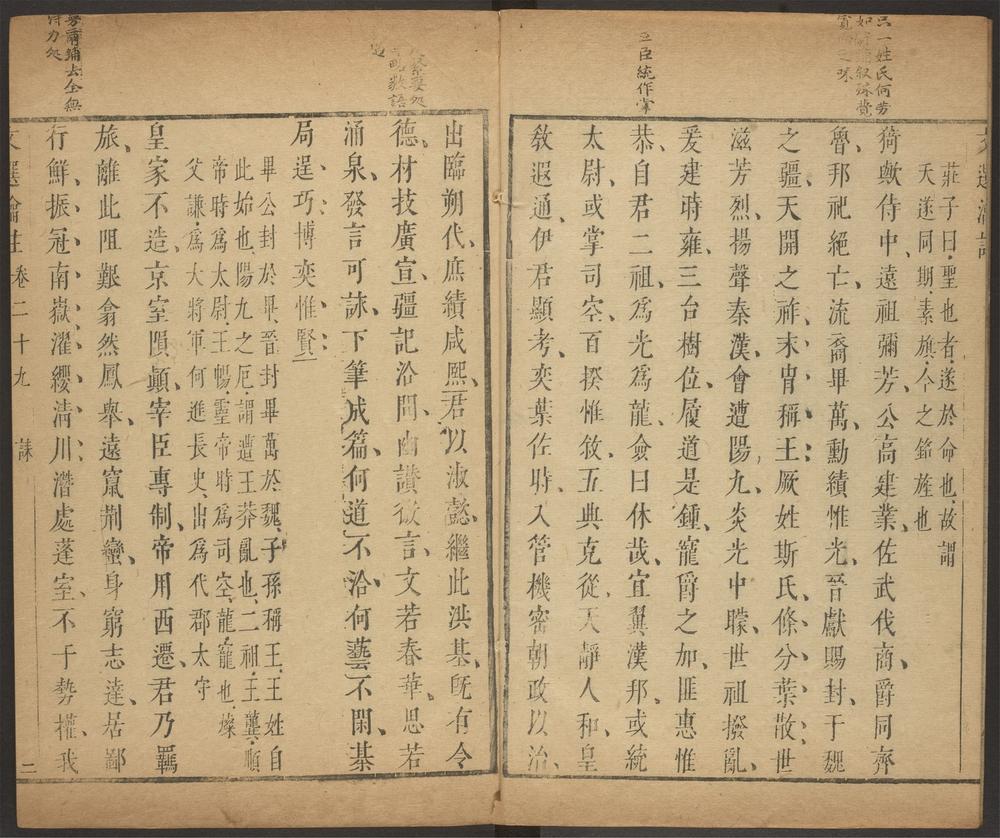 呂一姓氏何勞
莊子曰聖也者遂於命也故謂
天遂同期素旗今之銘旌也
猗歟侍中遠祖彌芳公高建業佐武伐商爵同齊
魯邦祀絕亡流裔畢萬勳績惟光晉獻賜封于魏
之疆天開之祚末胄稱王厥姓斯氏條分葉散世
滋芳烈揚聲秦漢會遭陽九炎光中矇世祖撥亂
爰建時雍三台樹位履道是鍾寵爵之加匪惠惟
恭自君二祖為光為龍僉曰休哉宜翼漢邦或統
太尉或掌司空百揆惟敘五典克從天靜人和皇
教遐通伊君顯考奕葉佐時入管機密朝政以治
臣統作掌
出臨朔代庶績咸熙君以淑懿繼此洪基旣有令
德材技廣宣疆記洽聞幽讚微言文若春華思若
涌泉發言可詠下筆成篇何道不洽何藝不閑棊
局逞巧博奕惟賢
畢公封於畢晉封畢萬於魏子孫稱王王姓自
此始也陽九之厄謂遭王莽亂也二祖王龔順
帝時為太尉王暢靈帝時為司空龍寵也燦
父謙為大將軍何進長史出為代郡太守
皇家不造京室隕顛宰臣專制帝用西遷君乃羈
旅離此阻艱翕然鳳舉遠竄荊蠻身窮志達居鄙
行鮮振冠南嶽濯纓清川潛處蓬室不干勢權我
卷二十九
誄
二